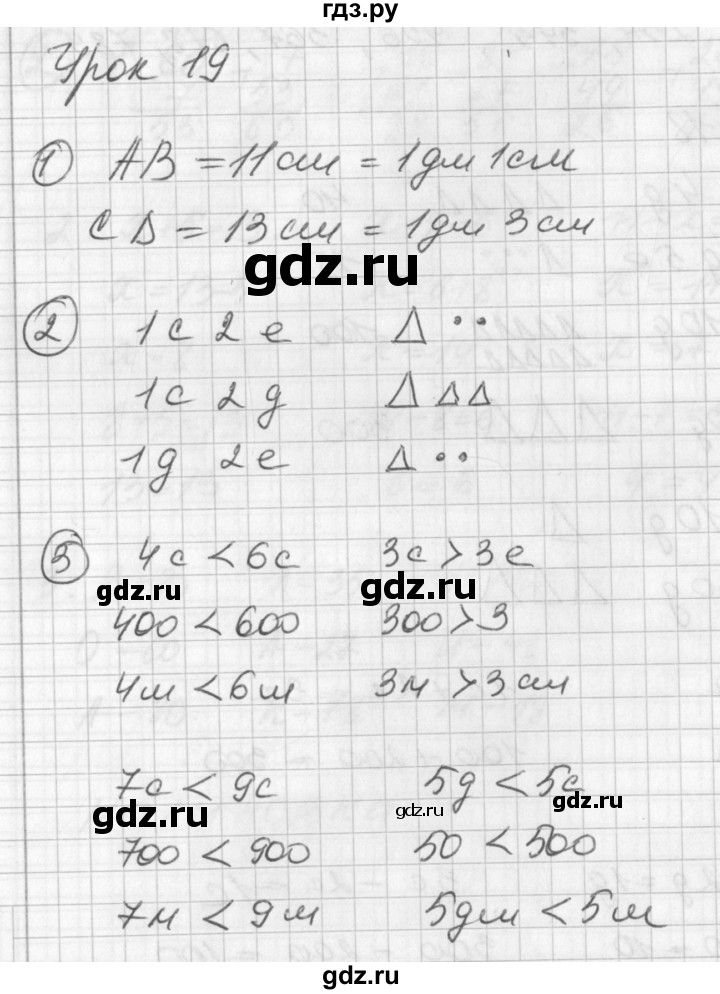 гдз.ру
Урок 19
1 AB = 11 см = 1 дм 1 см
CD = 13 см = 1 дм 3 см
gdz.ru
2 1с 2е
1с 2д
1д 2е
3 4с < 6с 3с > 3е
gdz.ru gdz.ru
400 < 600 300 > 3
4м < 6м 3м > 3 см
7с < 9с 5д < 5с
gdz.ru gdz.ru gdz.ru
700 < 900 50 < 500
7м < 9м 5дм < 5м
gdz.ru